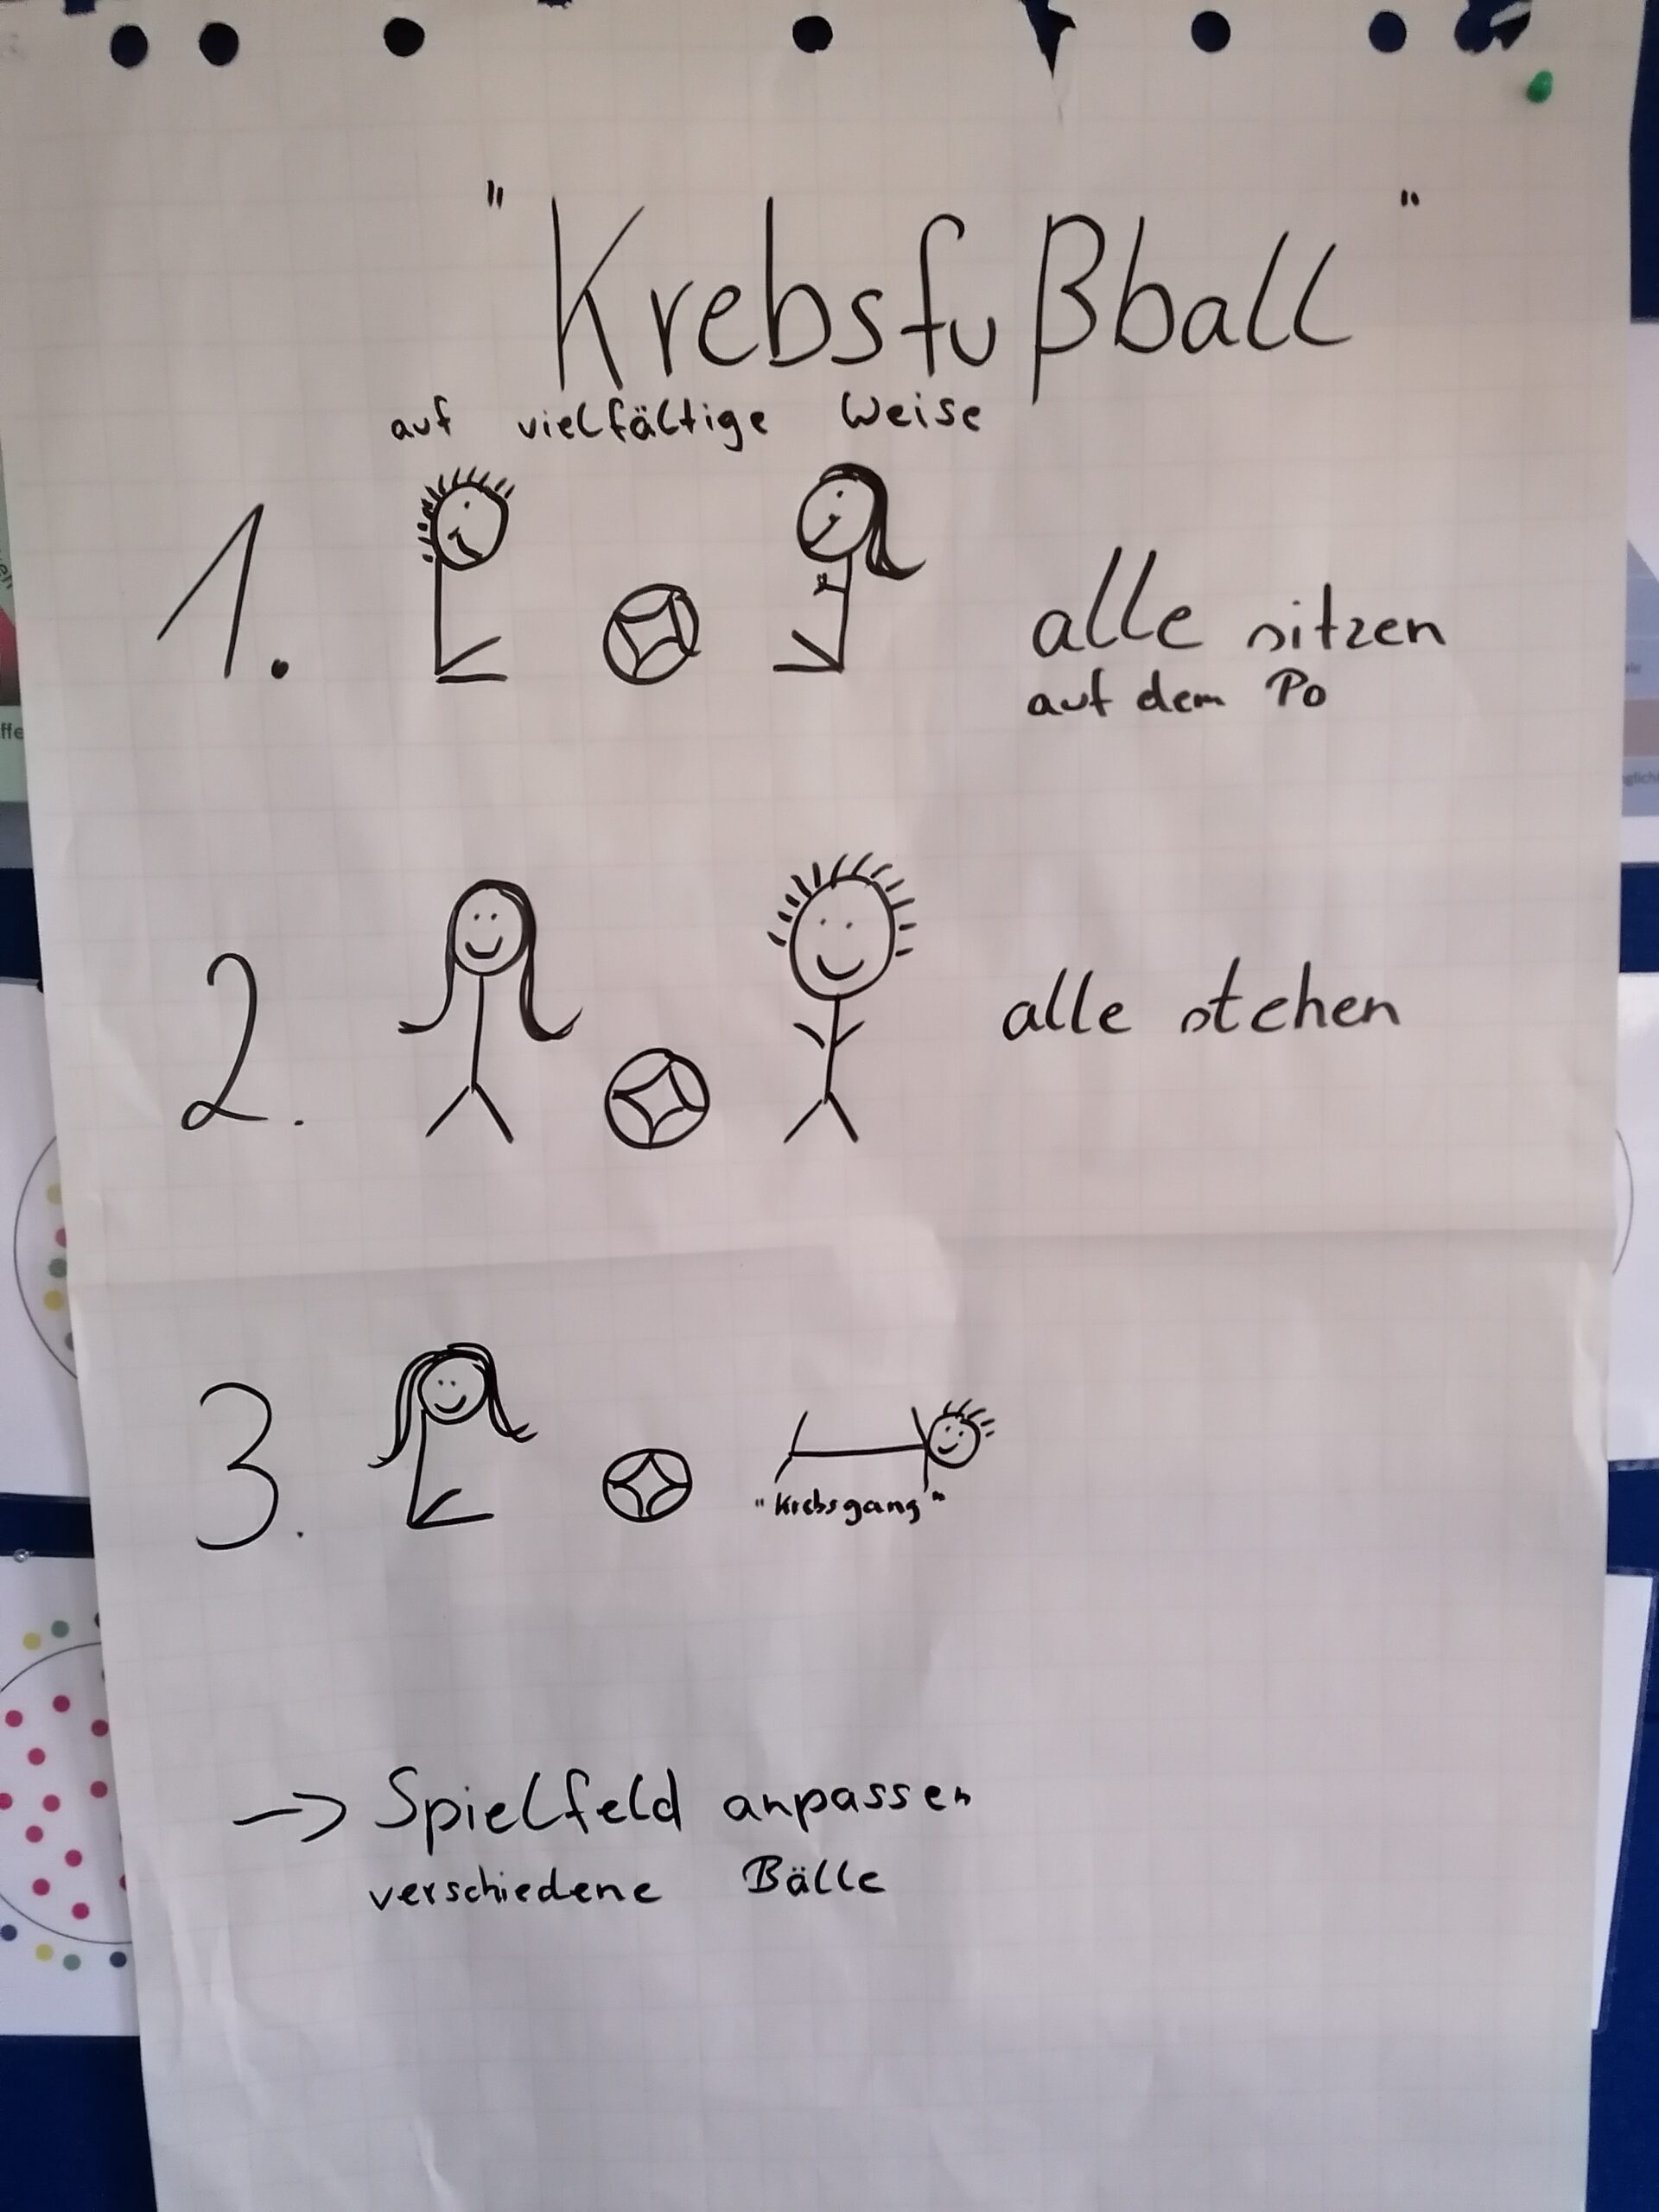 "Krebsfußball"
auf vielfältige Weise
1.
alle sitzen
auf dem Po
2.
alle stehen
3.
"Krebsgang"
→ Spielfeld anpassen
verschiedene Bälle